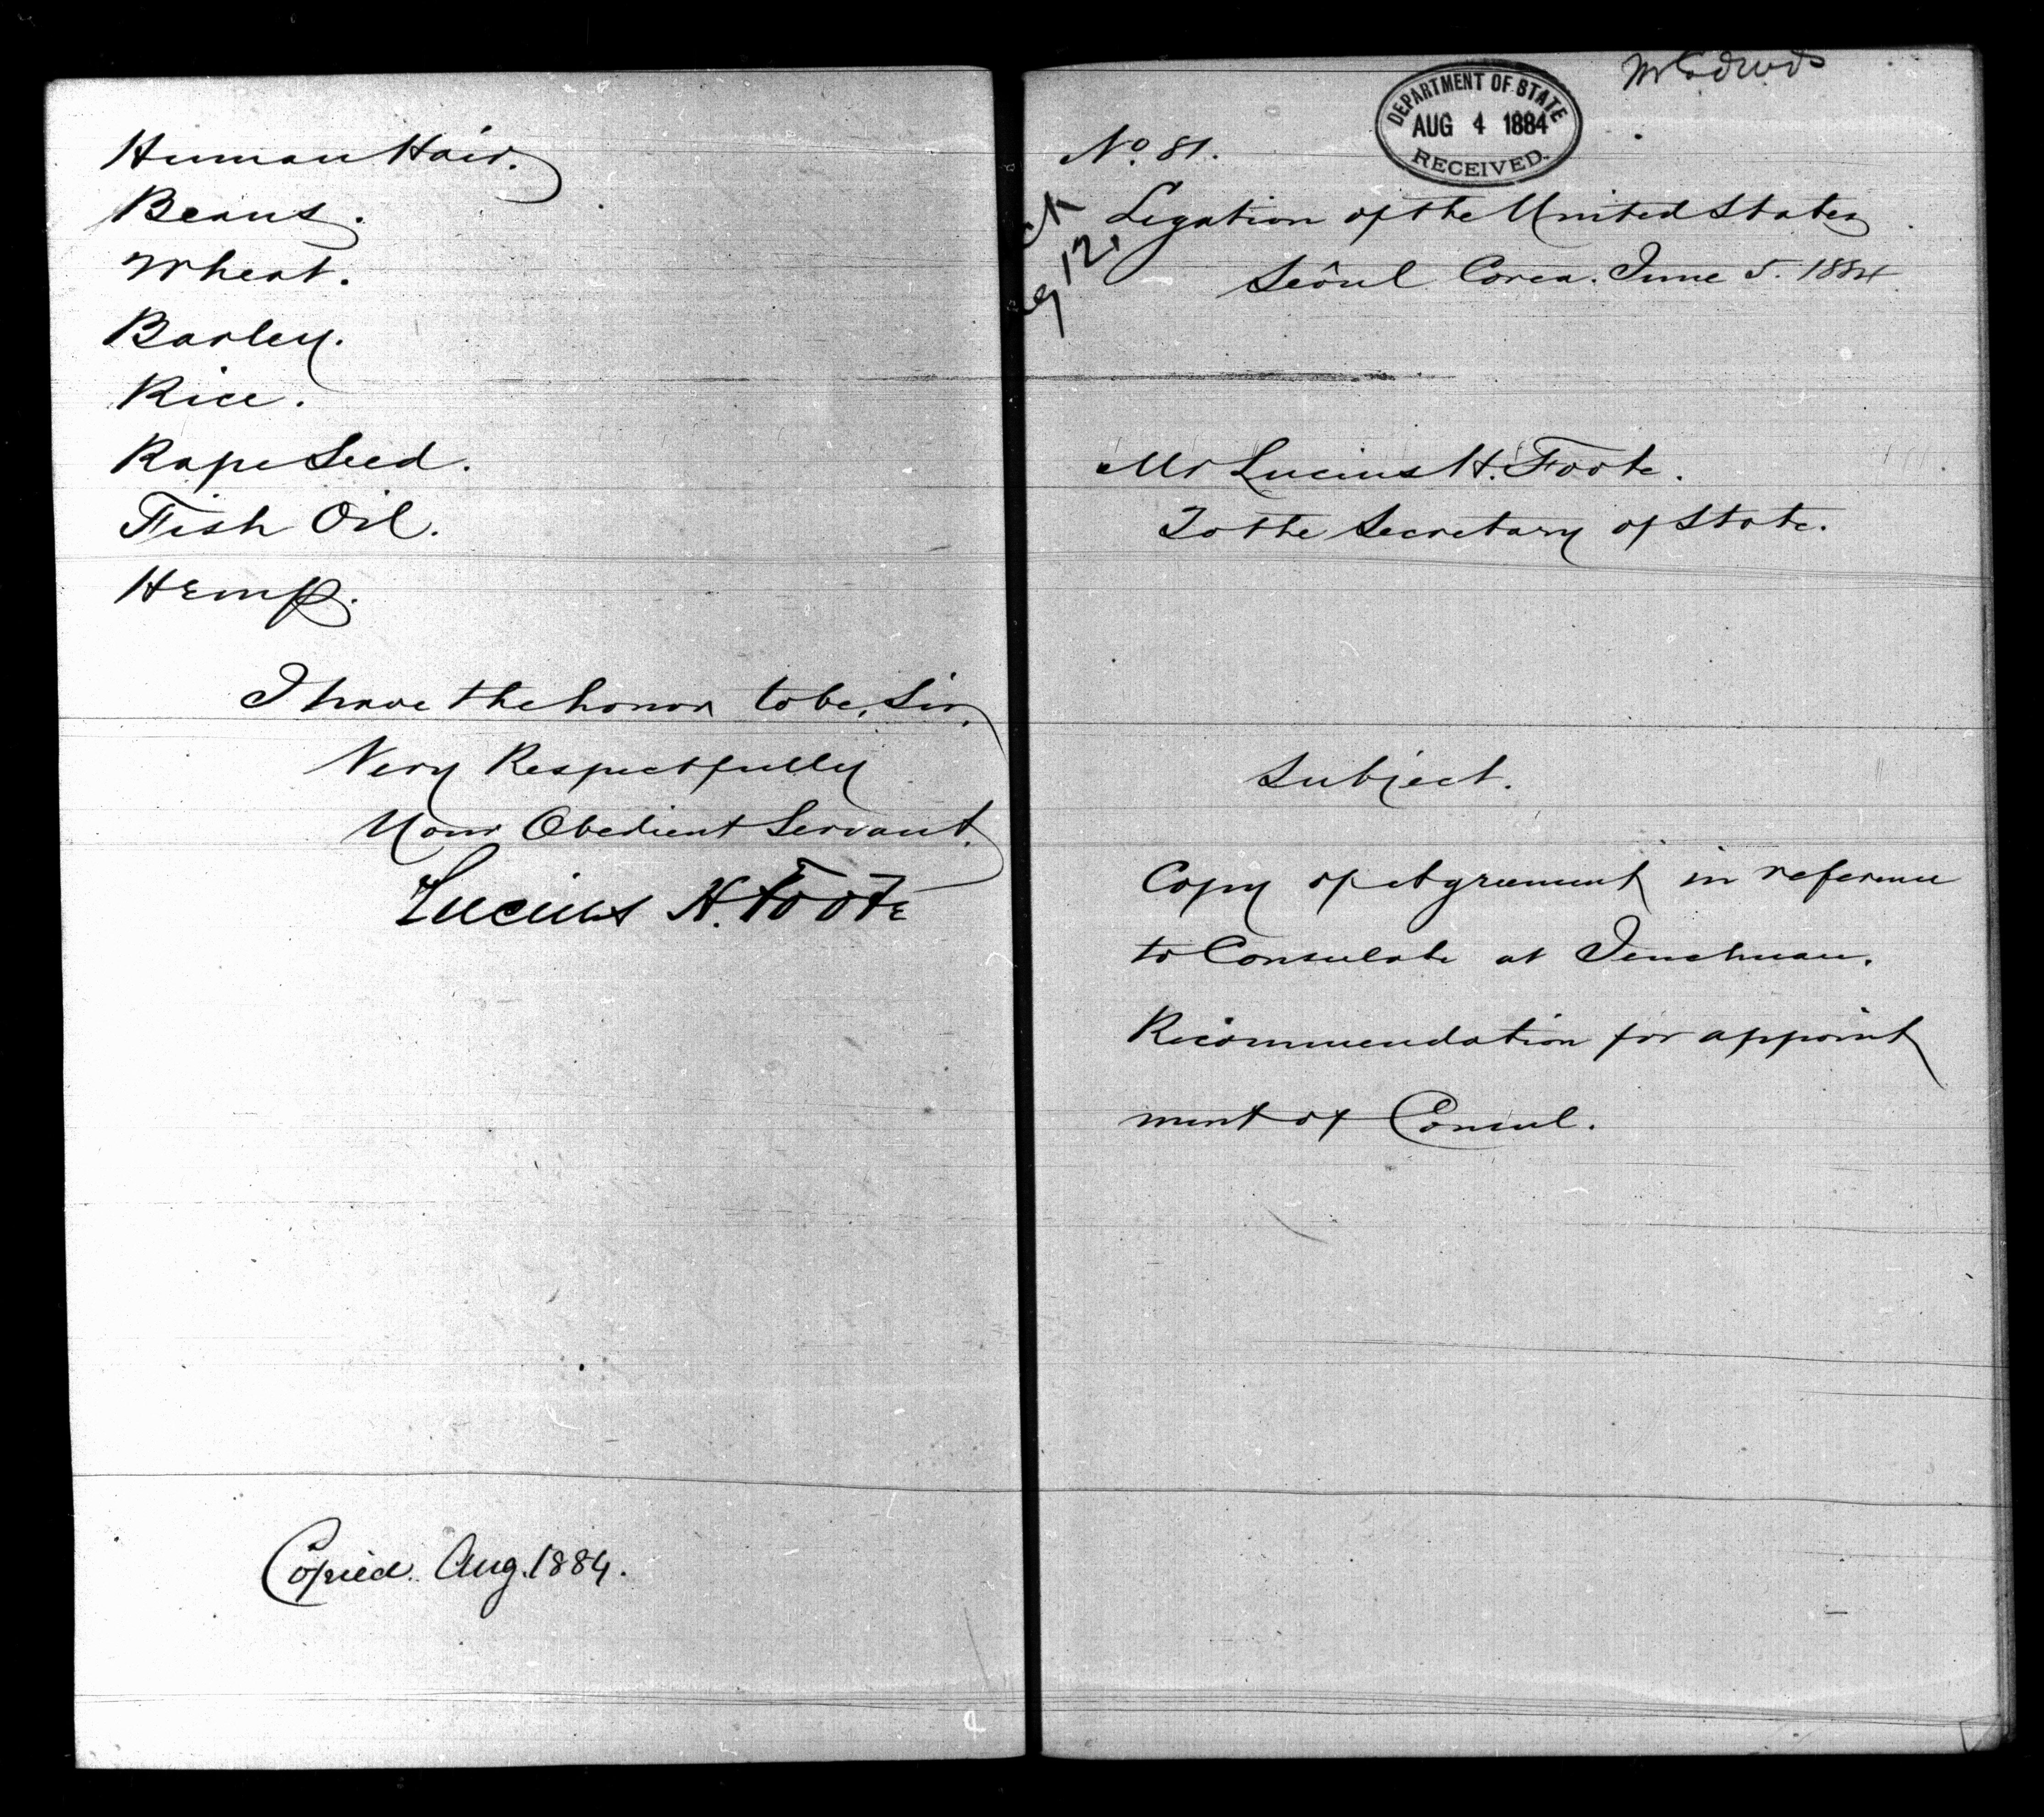 Human Hair.
Beans.
Wheat.
Barley.
Rice.
Rape Seed.
Fish Oil.
Hemp.
I have the honor to be, Sir,
Very Respectfully
Your Obedient Servant.
Lucius H. Foote
Copied. Aug. 1884.
DEPARTMENT OF STATE
AUG 4 1884
RECEIVED.
No. 81.
Legation of the United States
Seôul Corea. June 5. 1884
Mr Lucius H. Foote.
To the Secretary of State.
Subject.
Copy of Agreement in reference
to Consulate at Jenchuan.
Recommendation for appoint
ment of Consul.